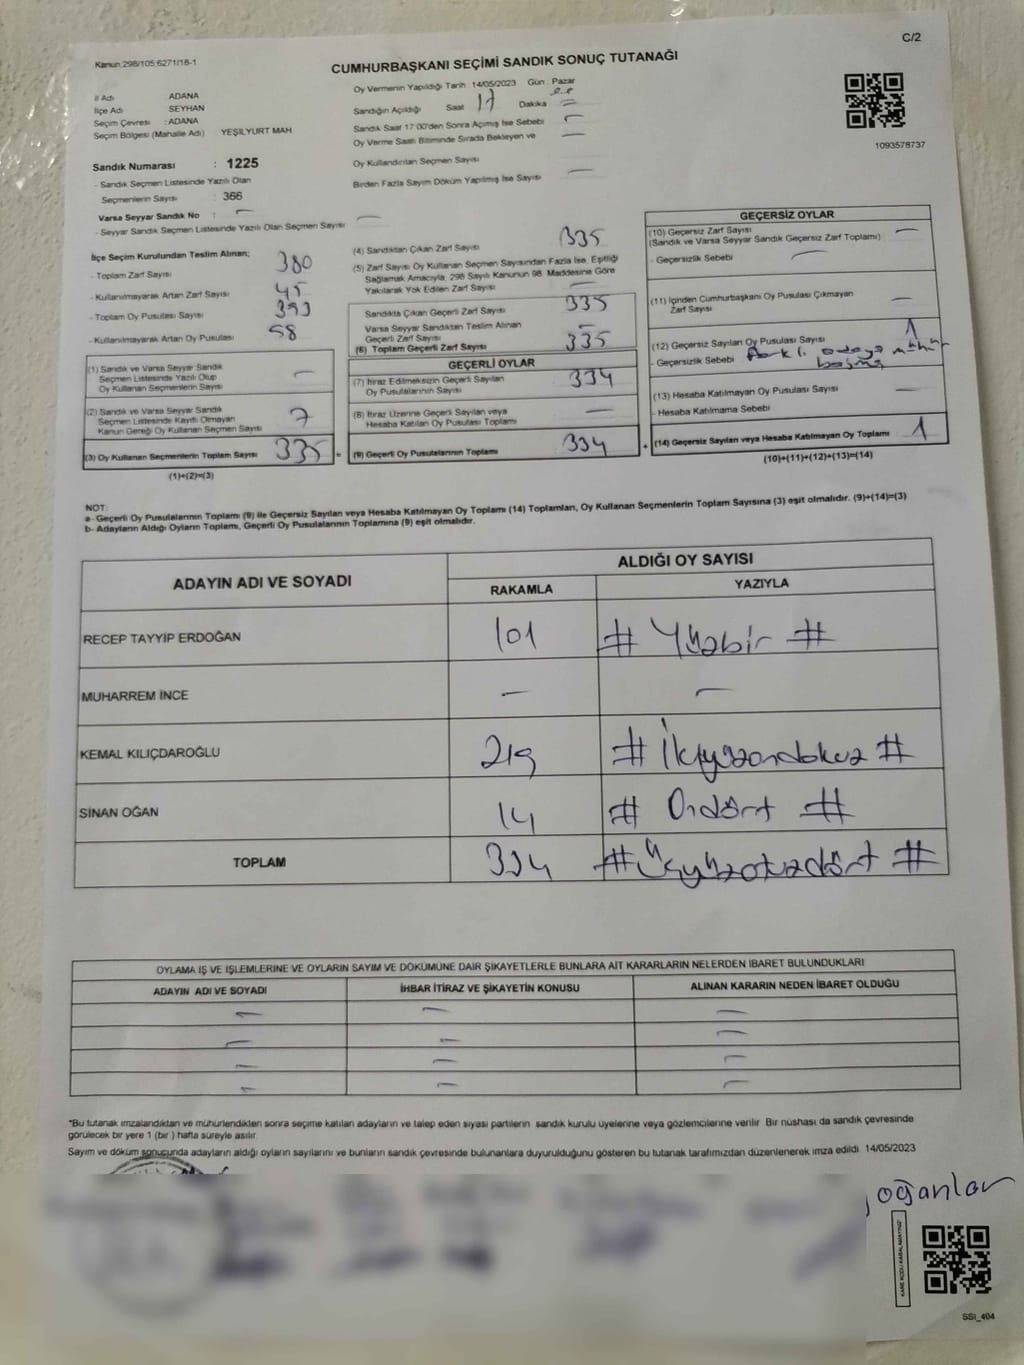 C/2
Kanun:298/105;6271/18-1
CUMHURBAŞKANI SEÇİMİ SANDIK SONUÇ TUTANAĞI
İl Adı ADANA
İlçe Adı SEYHAN
Seçim Çevresi : ADANA
Seçim Bölgesi (Mahalle Adı) YEŞİLYURT MAH.
Oy Vermenin Yapıldığı Tarih 14/05/2023 Gün : Pazar
Sandığın Açıldığı Saat 17 Dakika
Sandık Saat 17:00'den Sonra Açılmış İse Sebebi
Oy Verme Saati Bitiminde Sırada Bekleyen ve
Oy Kullandırılan Seçmen Sayısı
Birden Fazla Sayım Döküm Yapılmış İse Sayısı
1093578737
Sandık Numarası : 1225
- Sandık Seçmen Listesinde Yazılı Olan
Seçmenlerin Sayısı : 366
Varsa Seyyar Sandık No : —
- Seyyar Sandık Seçmen Listesinde Yazılı Olan Seçmen Sayısı —
İlçe Seçim Kurulundan Teslim Alınan;
- Toplam Zarf Sayısı 380
- Kullanılmayarak Artan Zarf Sayısı 45
- Toplam Oy Pusulası Sayısı 393
- Kullanılmayarak Artan Oy Pusulası 58
(1) Sandık ve Varsa Seyyar Sandık
Seçmen Listesinde Yazılı Olup
Oy Kullanan Seçmenlerin Sayısı —
(2) Sandık ve Varsa Seyyar Sandık
Seçmen Listesinde Kayıtlı Olmayan
Kanun Gereği Oy Kullanan Seçmen Sayısı 7
(3) Oy Kullanan Seçmenlerin Toplam Sayısı 335 =
(1)+(2)=(3)
(4) Sandıktan Çıkan Zarf Sayısı 335
(5) Zarf Sayısı Oy Kullanan Seçmen Sayısından Fazla İse, Eşitliği
Sağlamak Amacıyla, 298 Sayılı Kanunun 98. Maddesine Göre
Yakılarak Yok Edilen Zarf Sayısı —
Sandıkta Çıkan Geçerli Zarf Sayısı 335
Varsa Seyyar Sandıktan Teslim Alınan
Geçerli Zarf Sayısı —
(6) Toplam Geçerli Zarf Sayısı 335
GEÇERLİ OYLAR
(7) İtiraz Edilmeksizin Geçerli Sayılan
Oy Pusulalarının Sayısı 334
(8) İtiraz Üzerine Geçerli Sayılan veya
Hesaba Katılan Oy Pusulası Toplamı —
(9) Geçerli Oy Pusulalarının Toplamı 334 +
GEÇERSİZ OYLAR
(10) Geçersiz Zarf Sayısı
(Sandık ve Varsa Seyyar Sandık Geçersiz Zarf Toplamı) —
- Geçersizlik Sebebi —
(11) İçinden Cumhurbaşkanı Oy Pusulası Çıkmayan
Zarf Sayısı —
(12) Geçersiz Sayılan Oy Pusulası Sayısı 1
- Geçersizlik Sebebi Farklı adaya mühür
basma
(13) Hesaba Katılmayan Oy Pusulası Sayısı —
- Hesaba Katılmama Sebebi
(14) Geçersiz Sayılan veya Hesaba Katılmayan Oy Toplamı 1
(10)+(11)+(12)+(13)=(14)
NOT:
a- Geçerli Oy Pusulalarının Toplamı (9) ile Geçersiz Sayılan veya Hesaba Katılmayan Oy Toplamı (14) Toplamları, Oy Kullanan Seçmenlerin Toplam Sayısına (3) eşit olmalıdır. (9)+(14)=(3)
b- Adayların Aldığı Oyların Toplamı, Geçerli Oy Pusulalarının Toplamına (9) eşit olmalıdır.
ADAYIN ADI VE SOYADI ALDIĞI OY SAYISI
RAKAMLA YAZIYLA
RECEP TAYYİP ERDOĞAN 101 # Yüzbir #
MUHARREM İNCE — —
KEMAL KILIÇDAROĞLU 219 # İkiyüzondokuz #
SİNAN OĞAN 14 # Ondört #
TOPLAM 334 # Üçyüzotuzdört #
OYLAMA İŞ VE İŞLEMLERİNE VE OYLARIN SAYIM VE DÖKÜMÜNE DAİR ŞİKAYETLERLE BUNLARA AİT KARARLARIN NELERDEN İBARET BULUNDUKLARI
ADAYIN ADI VE SOYADI İHBAR İTİRAZ VE ŞİKAYETİN KONUSU ALINAN KARARIN NEDEN İBARET OLDUĞU
— — —
— — —
— — —
— — —
*Bu tutanak imzalandıktan ve mühürlendikten sonra seçime katılan adayların ve talep eden siyasi partilerin sandık kurulu üyelerine veya gözlemcilerine verilir. Bir nüshası da sandık çevresinde
görülecek bir yere 1 (bir ) hafta süreyle asılır.
Sayım ve döküm sonucunda adayların aldığı oyların sayılarını ve bunların sandık çevresinde bulunanlara duyurulduğunu gösteren bu tutanak tarafımızdan düzenlenerek imza edildi. 14/05/2023
oğanlar
KARE KODU KARALAMAYINIZ!
SSI_404